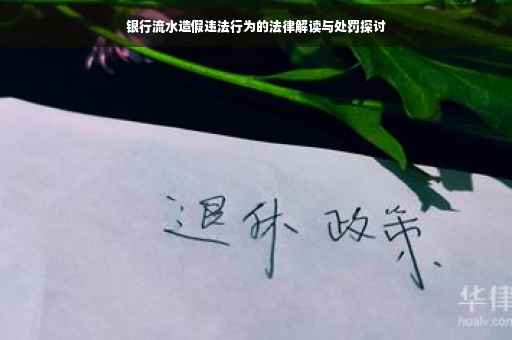 银行流水造假违法行为的法律解读与处罚探讨
退休 政策
华律
hualv.com